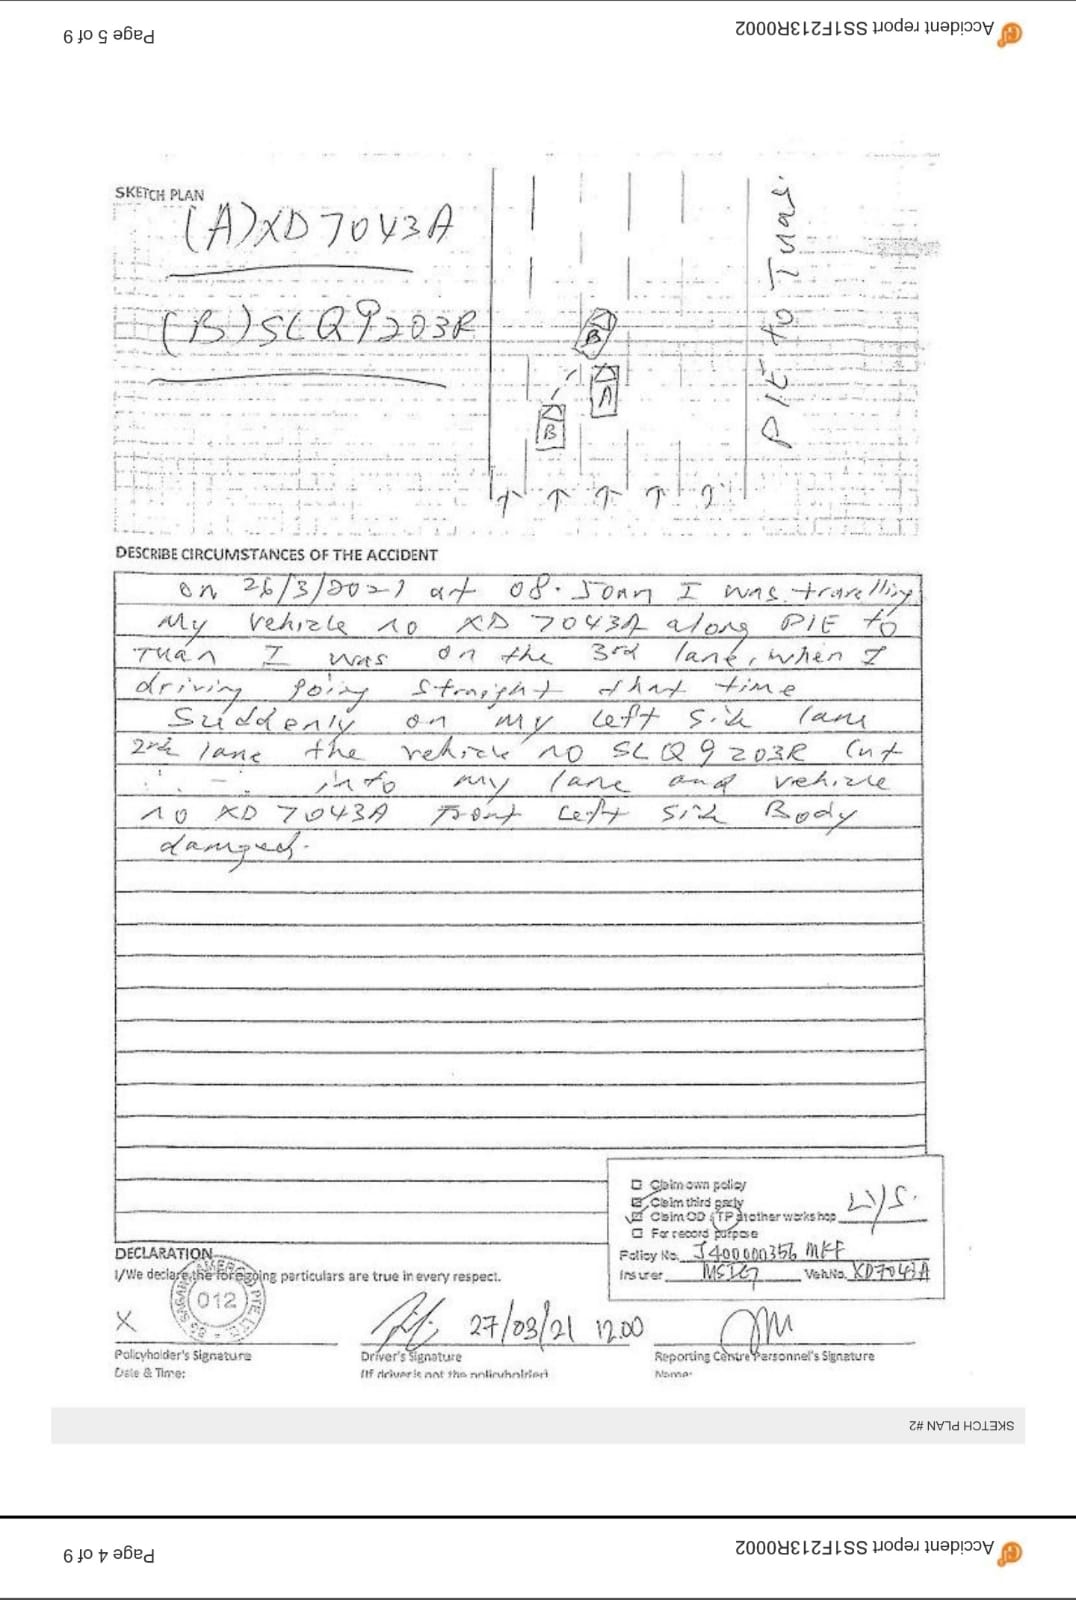 Page 5 of 9
Accident report SS1F213R0002
SKETCH PLAN
(A) XD 7043A
(B) SLQ9203R
B
A
B
PIE to Tuas.
DESCRIBE CIRCUMSTANCES OF THE ACCIDENT
on 26/3/2021 at 08.50am I was travelling
My vehicle no XD 7043A along PIE to
Tuan I was on the 3rd lane, when I
driving going straight that time
Suddenly on my left side lane
2nd lane the vehicle no SLQ9203R Cut
into my lane and vehicle
no XD 7043A Front Left Side Body
damged.
Claim own policy
Claim third party
Claim OD / TP at other workshop
For record purpose
Policy No. J400000356 MKF
Insurer MSIG Veh No. XD7043A
DECLARATION
I/We declare the foregoing particulars are true in every respect.
012
X
27/03/21 12.00
Policyholder's Signature
Driver's Signature
Reporting Centre Personnel's Signature
Date & Time:
(If driver is not the policyholder)
Name:
SKETCH PLAN #2
Page 4 of 9
Accident report SS1F213R0002